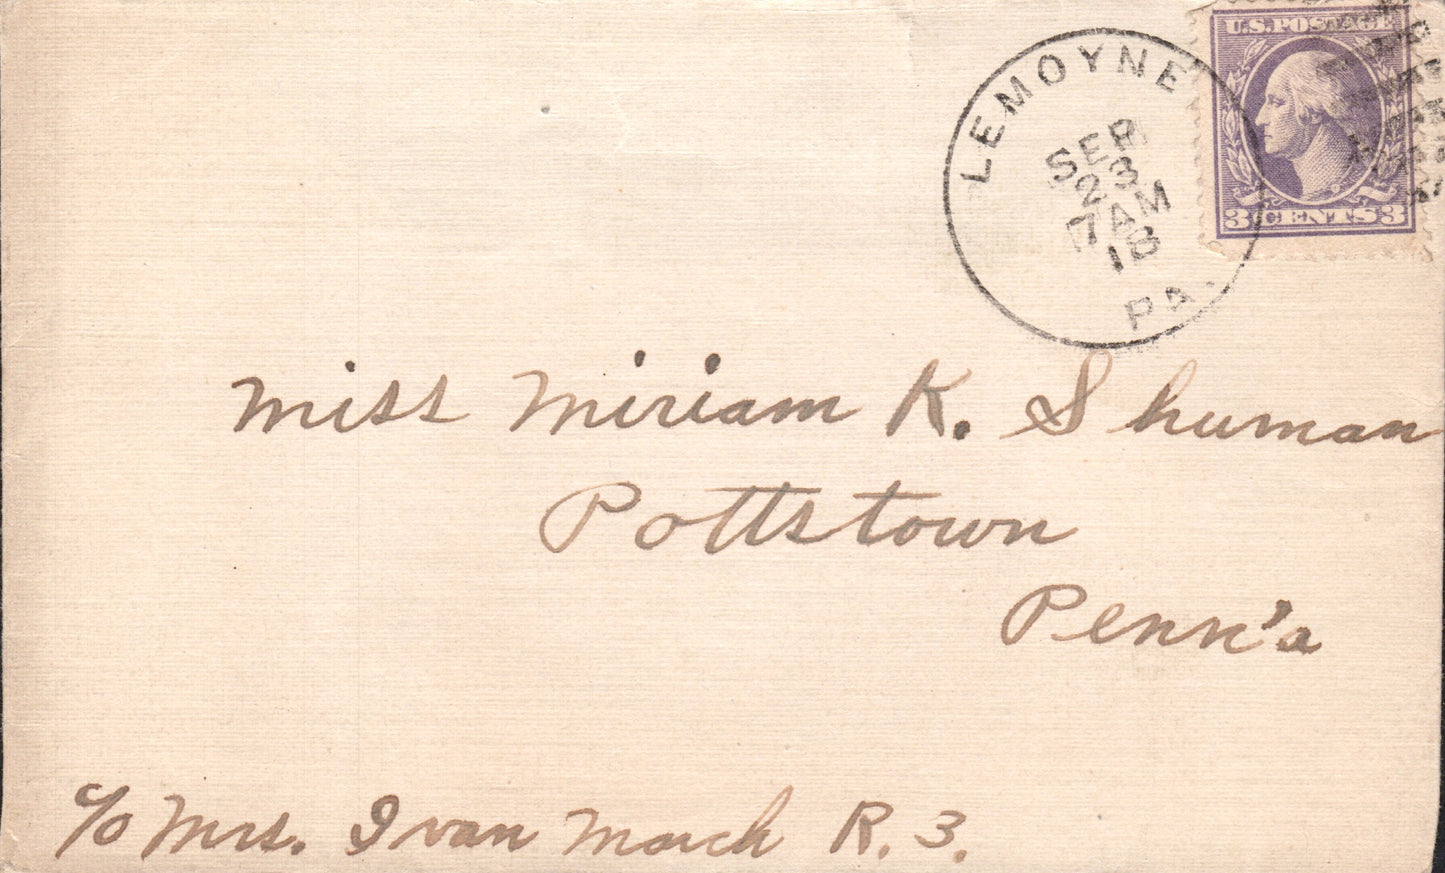 LEMOYNE
SEP
23
7 AM
18
PA.
U.S. POSTAGE
3 CENTS 3
Miss Miriam K. Shuman
Pottstown
Penn'a
c/o Mrs. Ivan March R. 3.